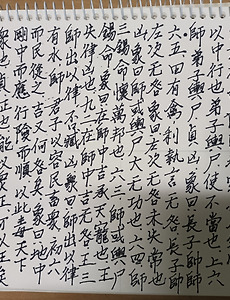 眾也貞正也能以眾正可以王矣
剛中而應行險而順以此毒天下
而民從之吉又何咎矣象曰地中
有水師君子以容民畜眾初六
師出以律否臧凶象曰師出以律
失律凶也九二在師中吉无咎王三
錫命象曰在師中吉承天寵也王
三錫命懷萬邦也六三師或輿尸
凶象曰師或輿尸大无功也六四師
左次无咎象曰左次无咎未失常也
六五田有禽利執言无咎長子帥
師弟子輿尸貞凶象曰長子帥師
以中行也弟子輿尸使不當也上六